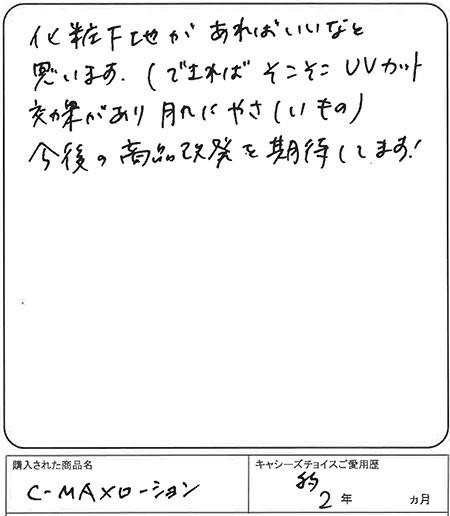 化粧下地が あればいいなと
思います.(できれば そこそこ UVカット
効果があり 肌にやさしいもの)
今後の商品改発を期待してます!
購入された商品名
C-MAXローション
キャシーズチョイスご愛用歴
約2年 ヵ月